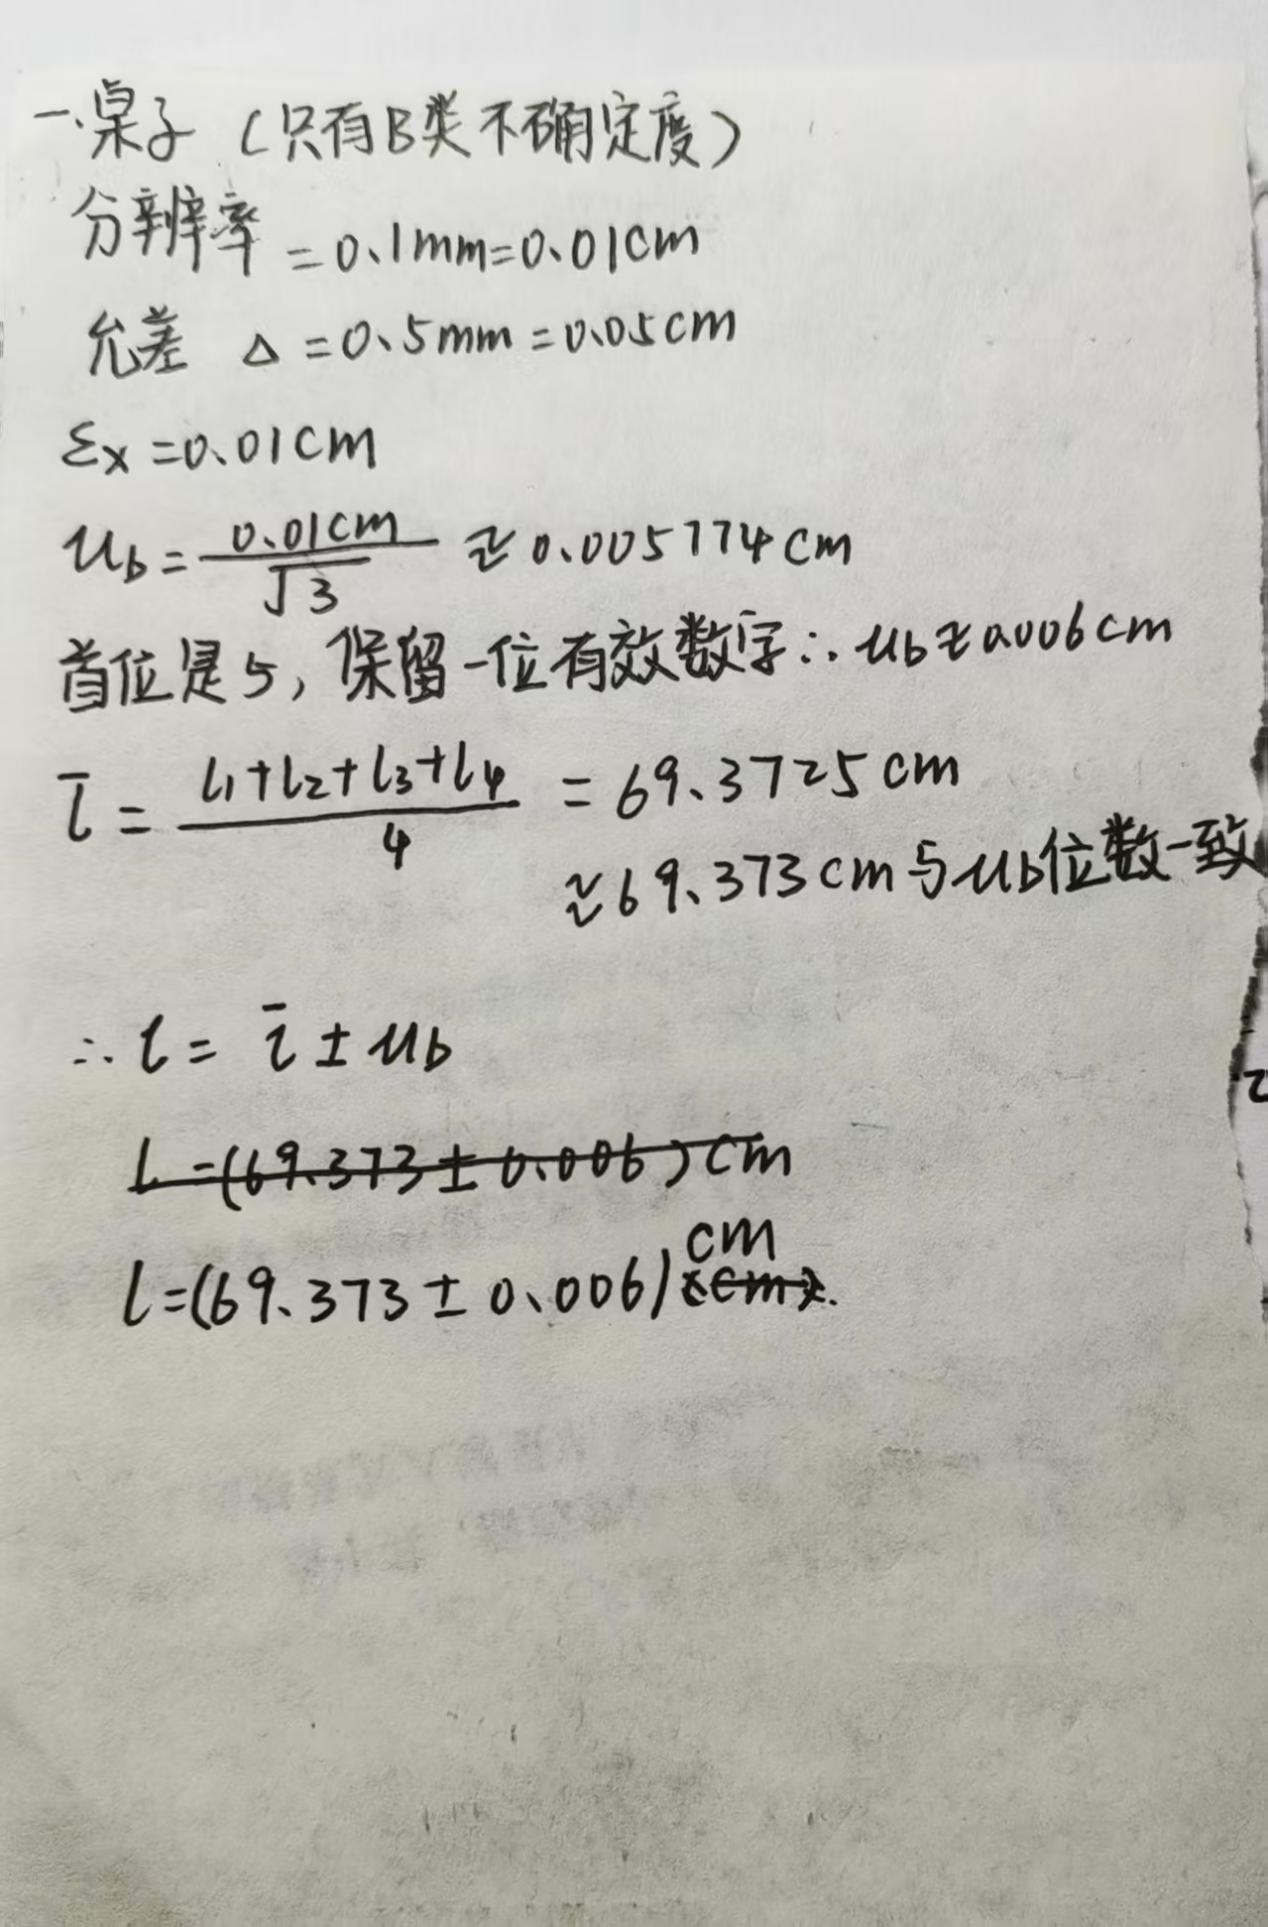 一.桌子（只有B类不确定度）
分辨率=0.1mm=0.01cm
允差 Δ=0.5mm=0.05cm
Σx=0.01cm
ub=0.01cm/√3≈0.005774cm
首位是5,保留一位有效数字∴ub≈0.006cm
l̄=(l1+l2+l3+l4)/4=69.3725cm
≈69.373cm与ub位数一致
∴l=l̄±ub
L=(69.373±0.006)cm
cm
l=(69.373±0.006)(cm).